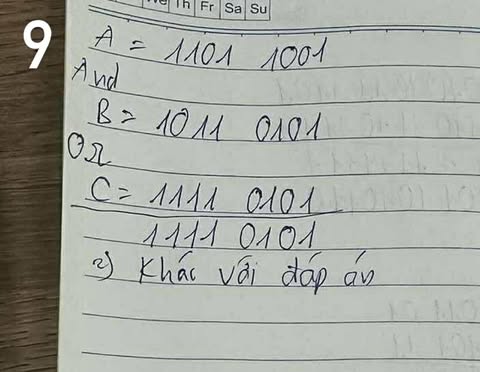 We Th Fr Sa Su
9
A = 1101 1001
And
B = 1011 0101
OR
C = 1111 0101
1111 0101
2) Khác với đáp án